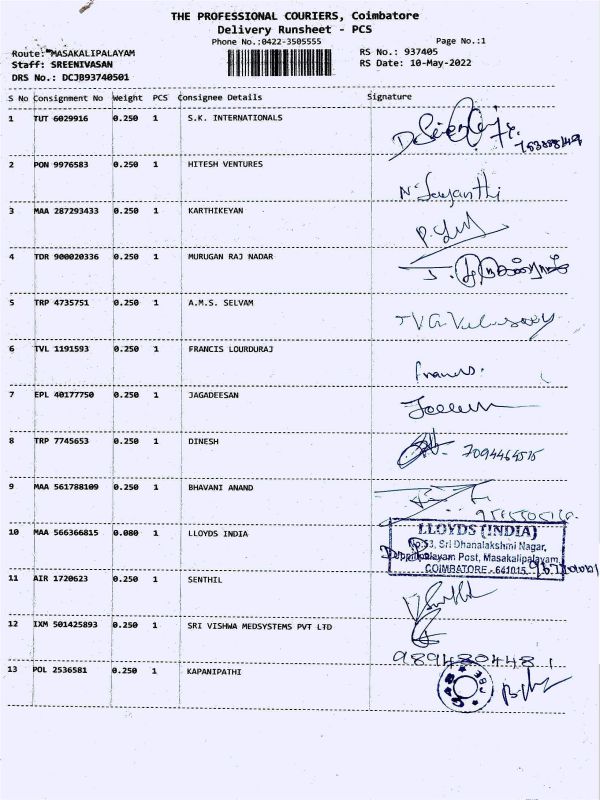 THE PROFESSIONAL COURIERS, Coimbatore
Delivery Runsheet - PCS
Phone No.:0422-3505555
Page No.:1
Route: MASAKALIPALAYAM
RS No.: 937405
Staff: SREENIVASAN
RS Date: 10-May-2022
DRS No.: DCJB93740501
S No Consignment No Weight PCS Consignee Details Signature
1 TUT 6029916 0.250 1 S.K. INTERNATIONALS
2 PON 9976583 0.250 1 HITESH VENTURES
N. Jayanthi
3 MAA 287293433 0.250 1 KARTHIKEYAN
4 TDR 900020336 0.250 1 MURUGAN RAJ NADAR
5 TRP 4735751 0.250 1 A.M.S. SELVAM
6 TVL 1191593 0.250 1 FRANCIS LOURDURAJ
Francis.
7 EPL 40177750 0.250 1 JAGADEESAN
8 TRP 7745653 0.250 1 DINESH
7094464515
9 MAA 561788109 0.250 1 BHAVANI ANAND
10 MAA 566366815 0.080 1 LLOYDS INDIA
LLOYDS (INDIA)
No:53, Sri Dhanalakshmi Nagar,
Post, Masakalipalayam,
COIMBATORE - 641015
11 AIR 1720623 0.250 1 SENTHIL
12 IXM 501425893 0.250 1 SRI VISHWA MEDSYSTEMS PVT LTD
9894804481
13 POL 2536581 0.250 1 KAPANIPATHI